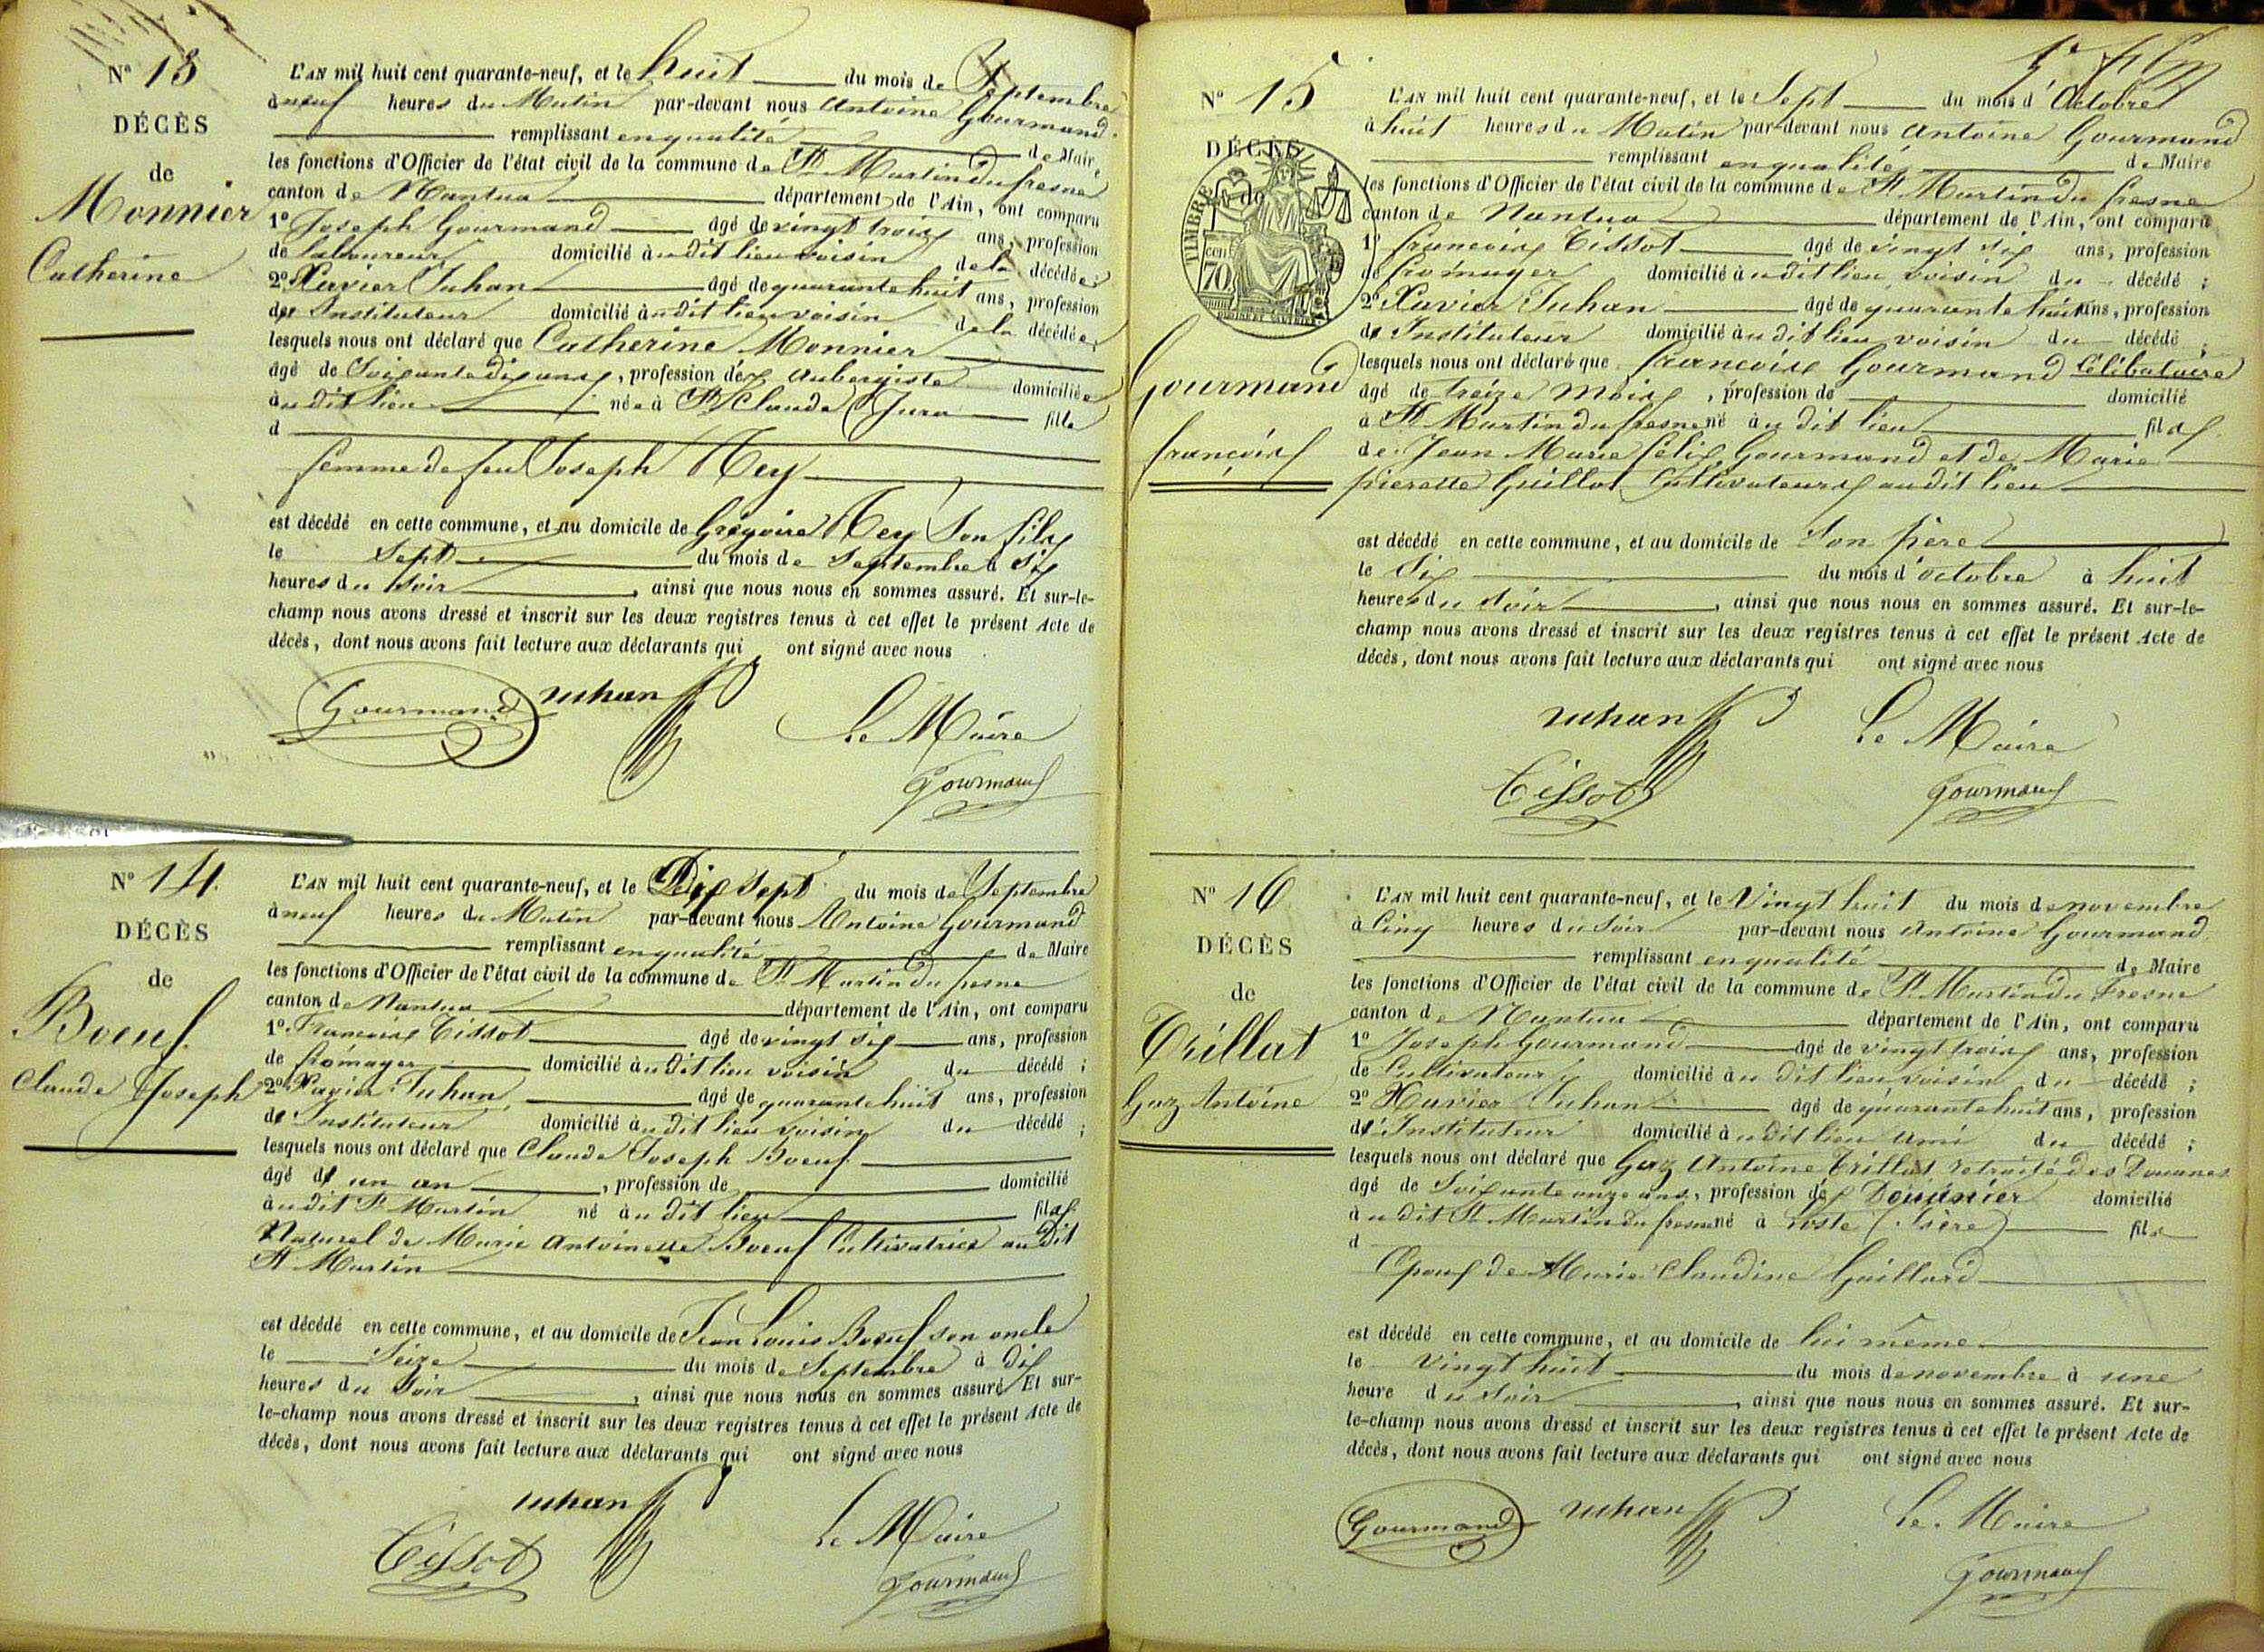 N° 13
DÉCÈS
de
Monnier
Catherine
L'AN mil huit cent quarante-neuf, et le huit du mois de Septembre
à neuf heures du Matin par-devant nous Antoine Gourmand
remplissant en qualité de Maire
les fonctions d'Officier de l'état civil de la commune de St Martin du fresne
canton de Nantua département de l'Ain, ont comparu
1° Joseph Gourmand âgé de vingt trois ans, profession
de laboureur domicilié au dit lieu voisin de la décédée;
2° Xavier Juhan âgé de quarante huit ans, profession
de Instituteur domicilié au dit lieu voisin de la décédée;
lesquels nous ont déclaré que Catherine Monnier
âgé de Soixante dix ans, profession des Aubergiste domiciliée
au dit lieu née à St Claude (Jura fille
d
femme de feu Joseph Rey
est décédé en cette commune, et au domicile de Grégoire Rey Son fils
le Sept du mois de Septembre à Six
heures du Soir, ainsi que nous nous en sommes assuré. Et sur-le-
champ nous avons dressé et inscrit sur les deux registres tenus à cet effet le présent Acte de
décès, dont nous avons fait lecture aux déclarants qui ont signé avec nous
Gourmand Juhan
Le Maire
Gourmand
N° 14.
DÉCÈS
de
Boeuf
Claude Joseph
L'AN mil huit cent quarante-neuf, et le Dix Sept du mois de Septembre
à neuf heures du Matin par-devant nous Antoine Gourmand
remplissant en qualité de Maire
les fonctions d'Officier de l'état civil de la commune de St Martin du fresne
canton de Nantua département de l'Ain, ont comparu
1° François Tissot âgé de vingt six ans, profession
de fromager domicilié au dit lieu voisin du décédé;
2° Xavier Juhan, âgé de quarante huit ans, profession
de Instituteur domicilié au dit lieu voisin du décédé;
lesquels nous ont déclaré que Claude Joseph Boeuf
âgé d un an, profession de domicilié
au dit St Martin né au dit lieu fils
Naturel de Marie Antoinette Boeuf Cultivatrice au dit
St Martin
est décédé en cette commune, et au domicile de Jean Louis Boeuf son oncle
le Seize du mois de Septembre à dix
heures du Soir, ainsi que nous nous en sommes assuré. Et sur-
le-champ nous avons dressé et inscrit sur les deux registres tenus à cet effet le présent Acte de
décès, dont nous avons fait lecture aux déclarants qui ont signé avec nous
Juhan
Tissot
Le Maire
Gourmand
N° 15
DÉCÈS
de
TIMBRE
cen
70
Gourmand
françois
L'AN mil huit cent quarante-neuf, et le Sept du mois d'Octobre
à huit heures du Matin par-devant nous Antoine Gourmand
remplissant en qualité de Maire
les fonctions d'Officier de l'état civil de la commune de St Martin du fresne
canton de Nantua département de l'Ain, ont comparu
1° françois Tissot âgé de vingt six ans, profession
de fromager domicilié au dit lieu voisin du décédé;
2° Xavier Juhan âgé de quarante huit ans, profession
de Instituteur domicilié au dit lieu voisin du décédé;
lesquels nous ont déclaré que françois Gourmand Célibataire
âgé de treize Mois, profession de domicilié
à St Martin du fresne né au dit lieu fils
de Jean Marie félix Gourmand et de Marie
pierette Guillot Cultivateurs au dit lieu
est décédé en cette commune, et au domicile de Son père
le Six du mois d'octobre à huit
heures du Soir, ainsi que nous nous en sommes assuré. Et sur-le-
champ nous avons dressé et inscrit sur les deux registres tenus à cet effet le présent Acte de
décès, dont nous avons fait lecture aux déclarants qui ont signé avec nous
Juhan
Le Maire
Tissot
Gourmand
N° 16
DÉCÈS
de
Trillat
Gaz Antoine
L'AN mil huit cent quarante-neuf, et le Vingt huit du mois de novembre
à Cinq heures du Soir par-devant nous Antoine Gourmand
remplissant en qualité de Maire
les fonctions d'Officier de l'état civil de la commune de St Martin du fresne
canton de Nantua département de l'Ain, ont comparu
1° Joseph Gourmand âgé de vingt trois ans, profession
de Cultivateur domicilié au dit lieu voisin du décédé;
2° Xavier Juhan âgé de quarante huit ans, profession
d'Instituteur domicilié au dit lieu Ami du décédé;
lesquels nous ont déclaré que Gaz Antoine Trillat retraité des Douanes
âgé de Soixante onze ans, profession de Douanier domicilié
au dit St Martin du fresne né à (Isère) fils
d
Epoux de Marie Claudine Gaillard
est décédé en cette commune, et au domicile de lui même
le Vingt huit du mois de novembre à une
heure du Soir, ainsi que nous nous en sommes assuré. Et sur-
le-champ nous avons dressé et inscrit sur les deux registres tenus à cet effet le présent Acte de
décès, dont nous avons fait lecture aux déclarants qui ont signé avec nous
Gourmand Juhan
Le Maire
Gourmand